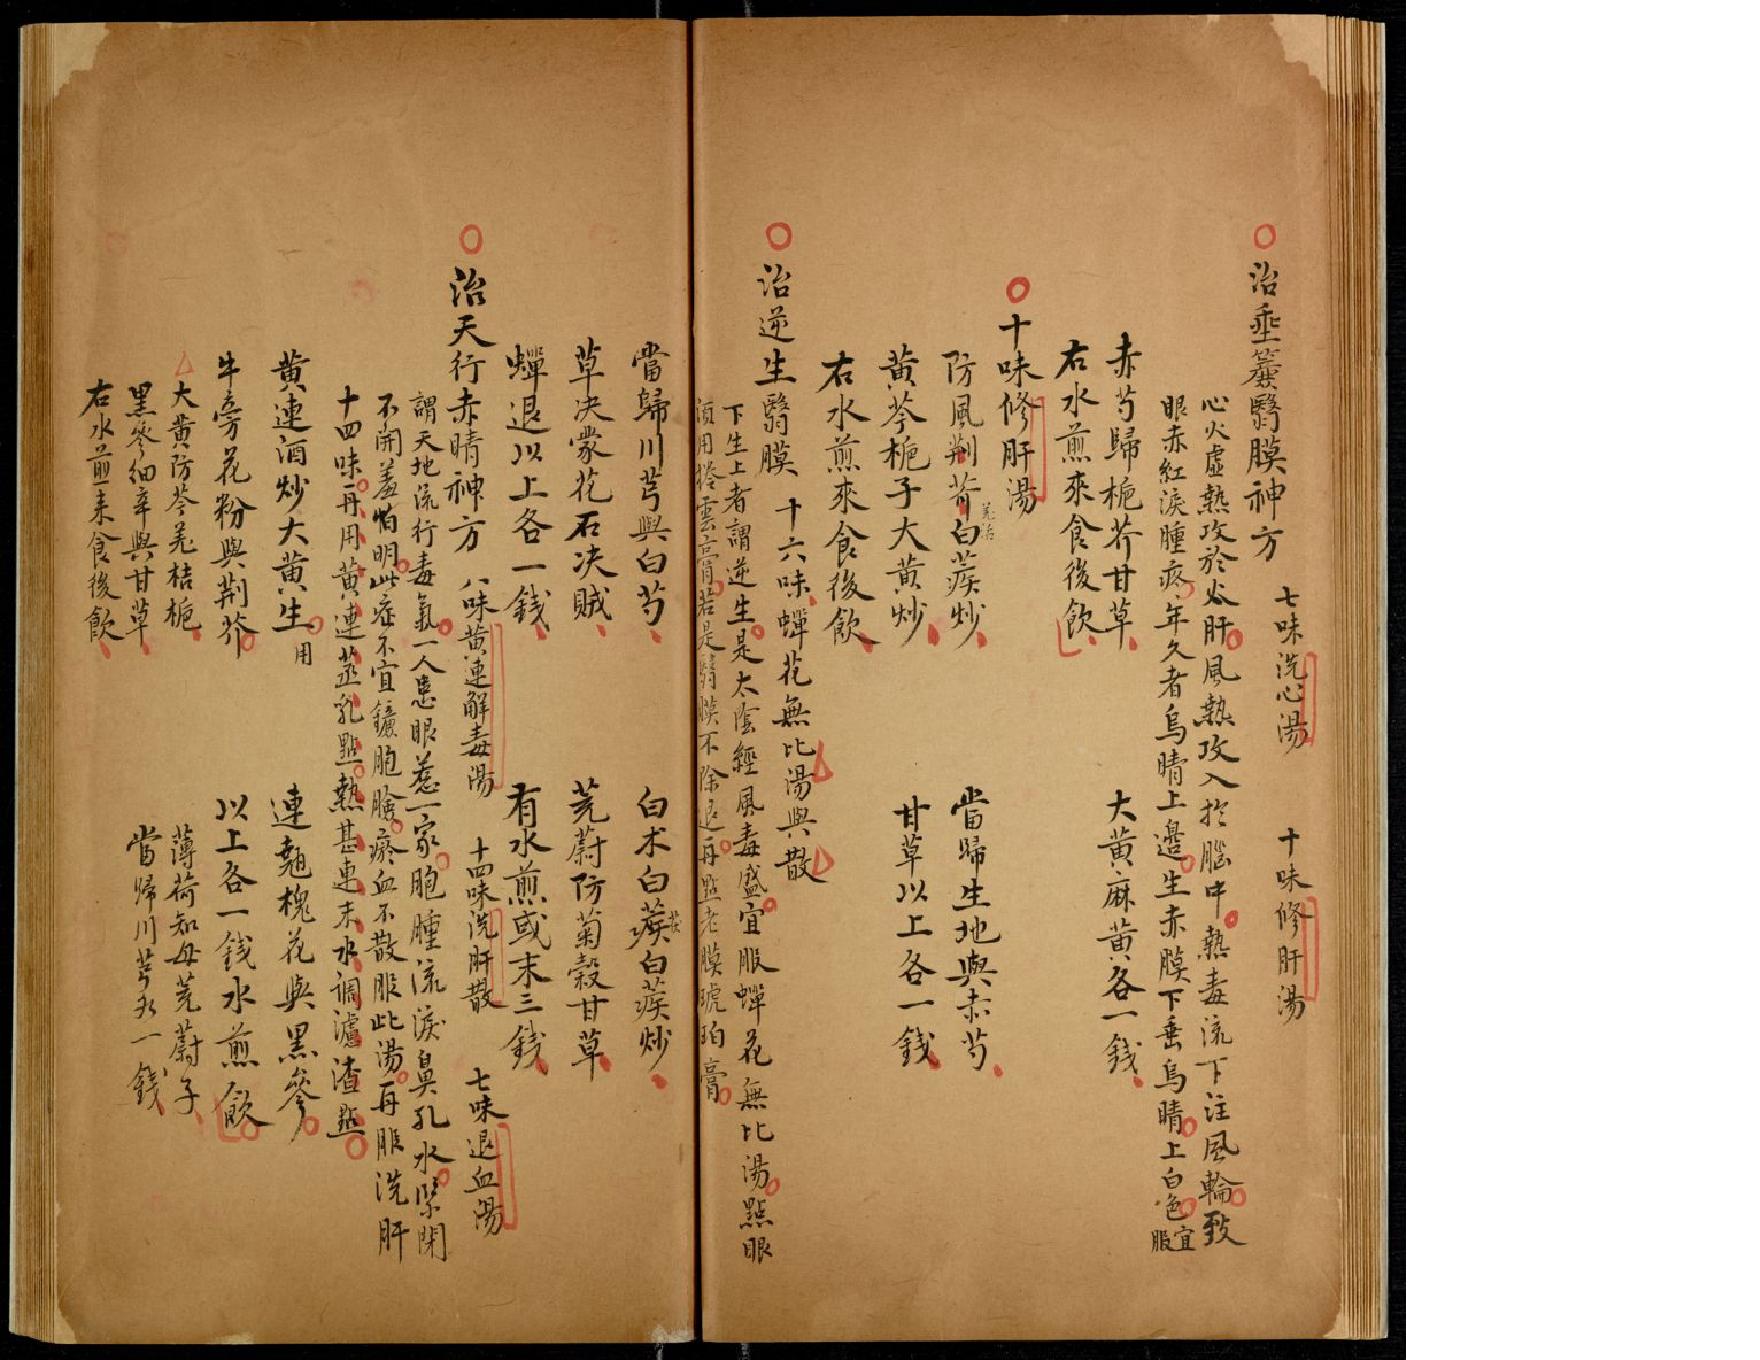 治垂簾翳膜神方　七味洗心湯　十味修肝湯
心火虛熱攻於火肝風熱攻入於腦中熱毒流下注風輪致
眼赤紅淚腫疼年久者烏睛上邊生赤膜下垂烏睛上白色宜服
赤芍歸梔芥甘草　大黃麻黃各一錢
右水煎來食後飲
十味修肝湯
防風荆芥羌活白蒺炒　當歸生地與赤芍
黃芩梔子大黃炒　甘草以上各一錢
右水煎來食後飲
治逆生翳膜　十六味蟬花無比湯與散
下生上者謂逆生是太陰經風毒盛宜服蟬花無比湯點眼
須用捲雲膏若是翳膜不除退再點老膜琥珀膏
當歸川芎與白芍　白术白蒺白蒺炒
草决蒙花石决賊　茺蔚防菊穀甘草
蟬退以上各一錢　有水煎或末三錢
治天行赤睛神方　八味黃連解毒湯　十四味洗肝散　七味退血湯
謂天地流行毒氣一人患眼惹一家胞腫流淚鼻孔水緊閉
不開羞怕明此症不宜鐮胞瞼瘀血不散服此湯再服洗肝
十四味再用黃連蒸乳點熱甚連末水調濾渣點
黃連酒炒大黃生用　連翹槐花與黑參
牛旁花粉與荆芥　以上各一錢水煎飲
大黃防芩羌桔梔　薄荷知母茺蔚子
黑參細辛與甘草　當歸川芎各一錢
右水煎來食後飲